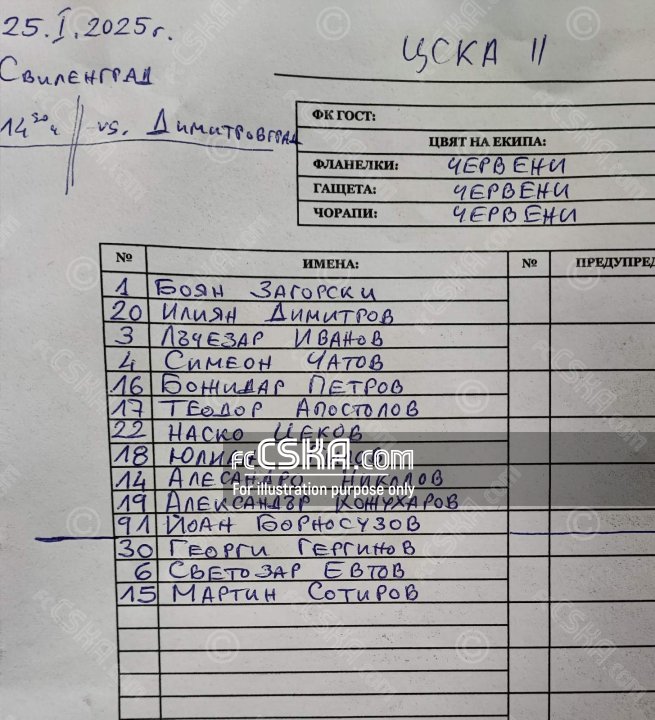 25.I.2025г.
ЦСКА II
Свиленград
14 30ч // vs. Димитровград
ФК ГОСТ:
ЦВЯТ НА ЕКИПА:
ФЛАНЕЛКИ: ЧЕРВЕНИ
ГАЩЕТА: ЧЕРВЕНИ
ЧОРАПИ: ЧЕРВЕНИ
№ ИМЕНА: № ПРЕДУПРЕД
1 БОЯН ЗАГОРСКИ
20 ИЛИЯН ДИМИТРОВ
3 ЛЪЧЕЗАР ИВАНОВ
4 СИМЕОН ЧАТОВ
16 БОЖИДАР ПЕТРОВ
17 ТЕОДОР АПОСТОЛОВ
22 НАСКО ЦЕКОВ
18
fcCSKA.com
14 АЛЕСАНДРО НИКОЛОВ
For illustration purpose only
19 АЛЕКСАНДЪР КОЖУХАРОВ
91 ЙОАН БОРНОСУЗОВ
30 ГЕОРГИ ГЕРГИНОВ
6 СВЕТОЗАР ЕВТОВ
15 МАРТИН СОТИРОВ